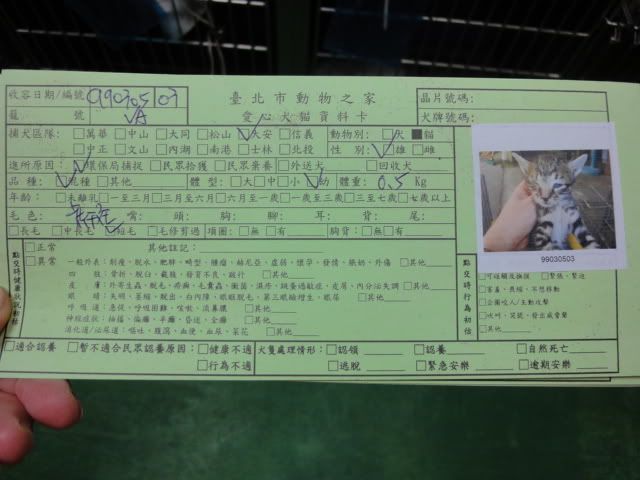 收容日期/編號 990305 03
臺北市動物之家
晶片號碼:
籠 號 VA
愛心犬貓資料卡
犬牌號碼:
捕犬區隊: □萬華 □中山 □大同 □松山 ☑大安 □信義 動物別: □犬 ■貓
□中正 □文山 □內湖 □南港 □士林 □北投 性別: ☑雄 □雌
進所原因: ☑環保局捕捉 □民眾拾獲 □民眾棄養 □外送犬 □回收犬
品種: ☑混種 □其他 體型: □大 □中 □小 ☑幼 體重: 0.5 Kg
年齡: □未離乳 □一至三月 □三月至六月 □六月至一歲 □一歲至三歲 □三至七歲 □七歲以上
毛色: 嘴: 頭: 胸: 腳: 耳: 背: 尾:
□長毛 □中長毛 □短毛 □毛修剪過 項圈: □無 □有 胸背: □無 □有
99030503
點交時健康狀況初估
□正常 其他註記:
□異常 一般外表: 削瘦、脫水、肥胖、畸型、腫瘤、赫尼亞、虛弱、懷孕、發情、脹奶、外傷 □其他
四 肢: 骨折、脫臼、截肢、發育不良、跛行 □其他
皮 膚: 外寄生蟲、脫毛、疥癬、毛囊蟲、黴菌、濕疹、跳蚤過敏症、皮屑、內分泌失調 □其他
眼 睛: 失明、萎縮、脫出、白內障、眼瞼脫毛、第三眼瞼增生、眼屎 □其他
呼吸道: 急促、呼吸困難、咳嗽、流鼻膿 □其他
神經症狀: 抽搐、偏癱、半癱、昏迷、全癱 □其他
消化道/泌尿道: 嘔吐、腹瀉、血便、血尿、尿花 □其他
點交時行為初估
□可碰觸及撫摸 □緊張、緊迫
□害羞、畏縮、不想移動
□企圖咬人/主動攻擊
□吠叫、哭號、發出威脅聲
□其他
□適合認養 □暫不適合民眾認養原因: □健康不適 犬隻處理情形: □認領 □認養 □自然死亡
□行為不適 □逃脫 □緊急安樂 □逾期安樂